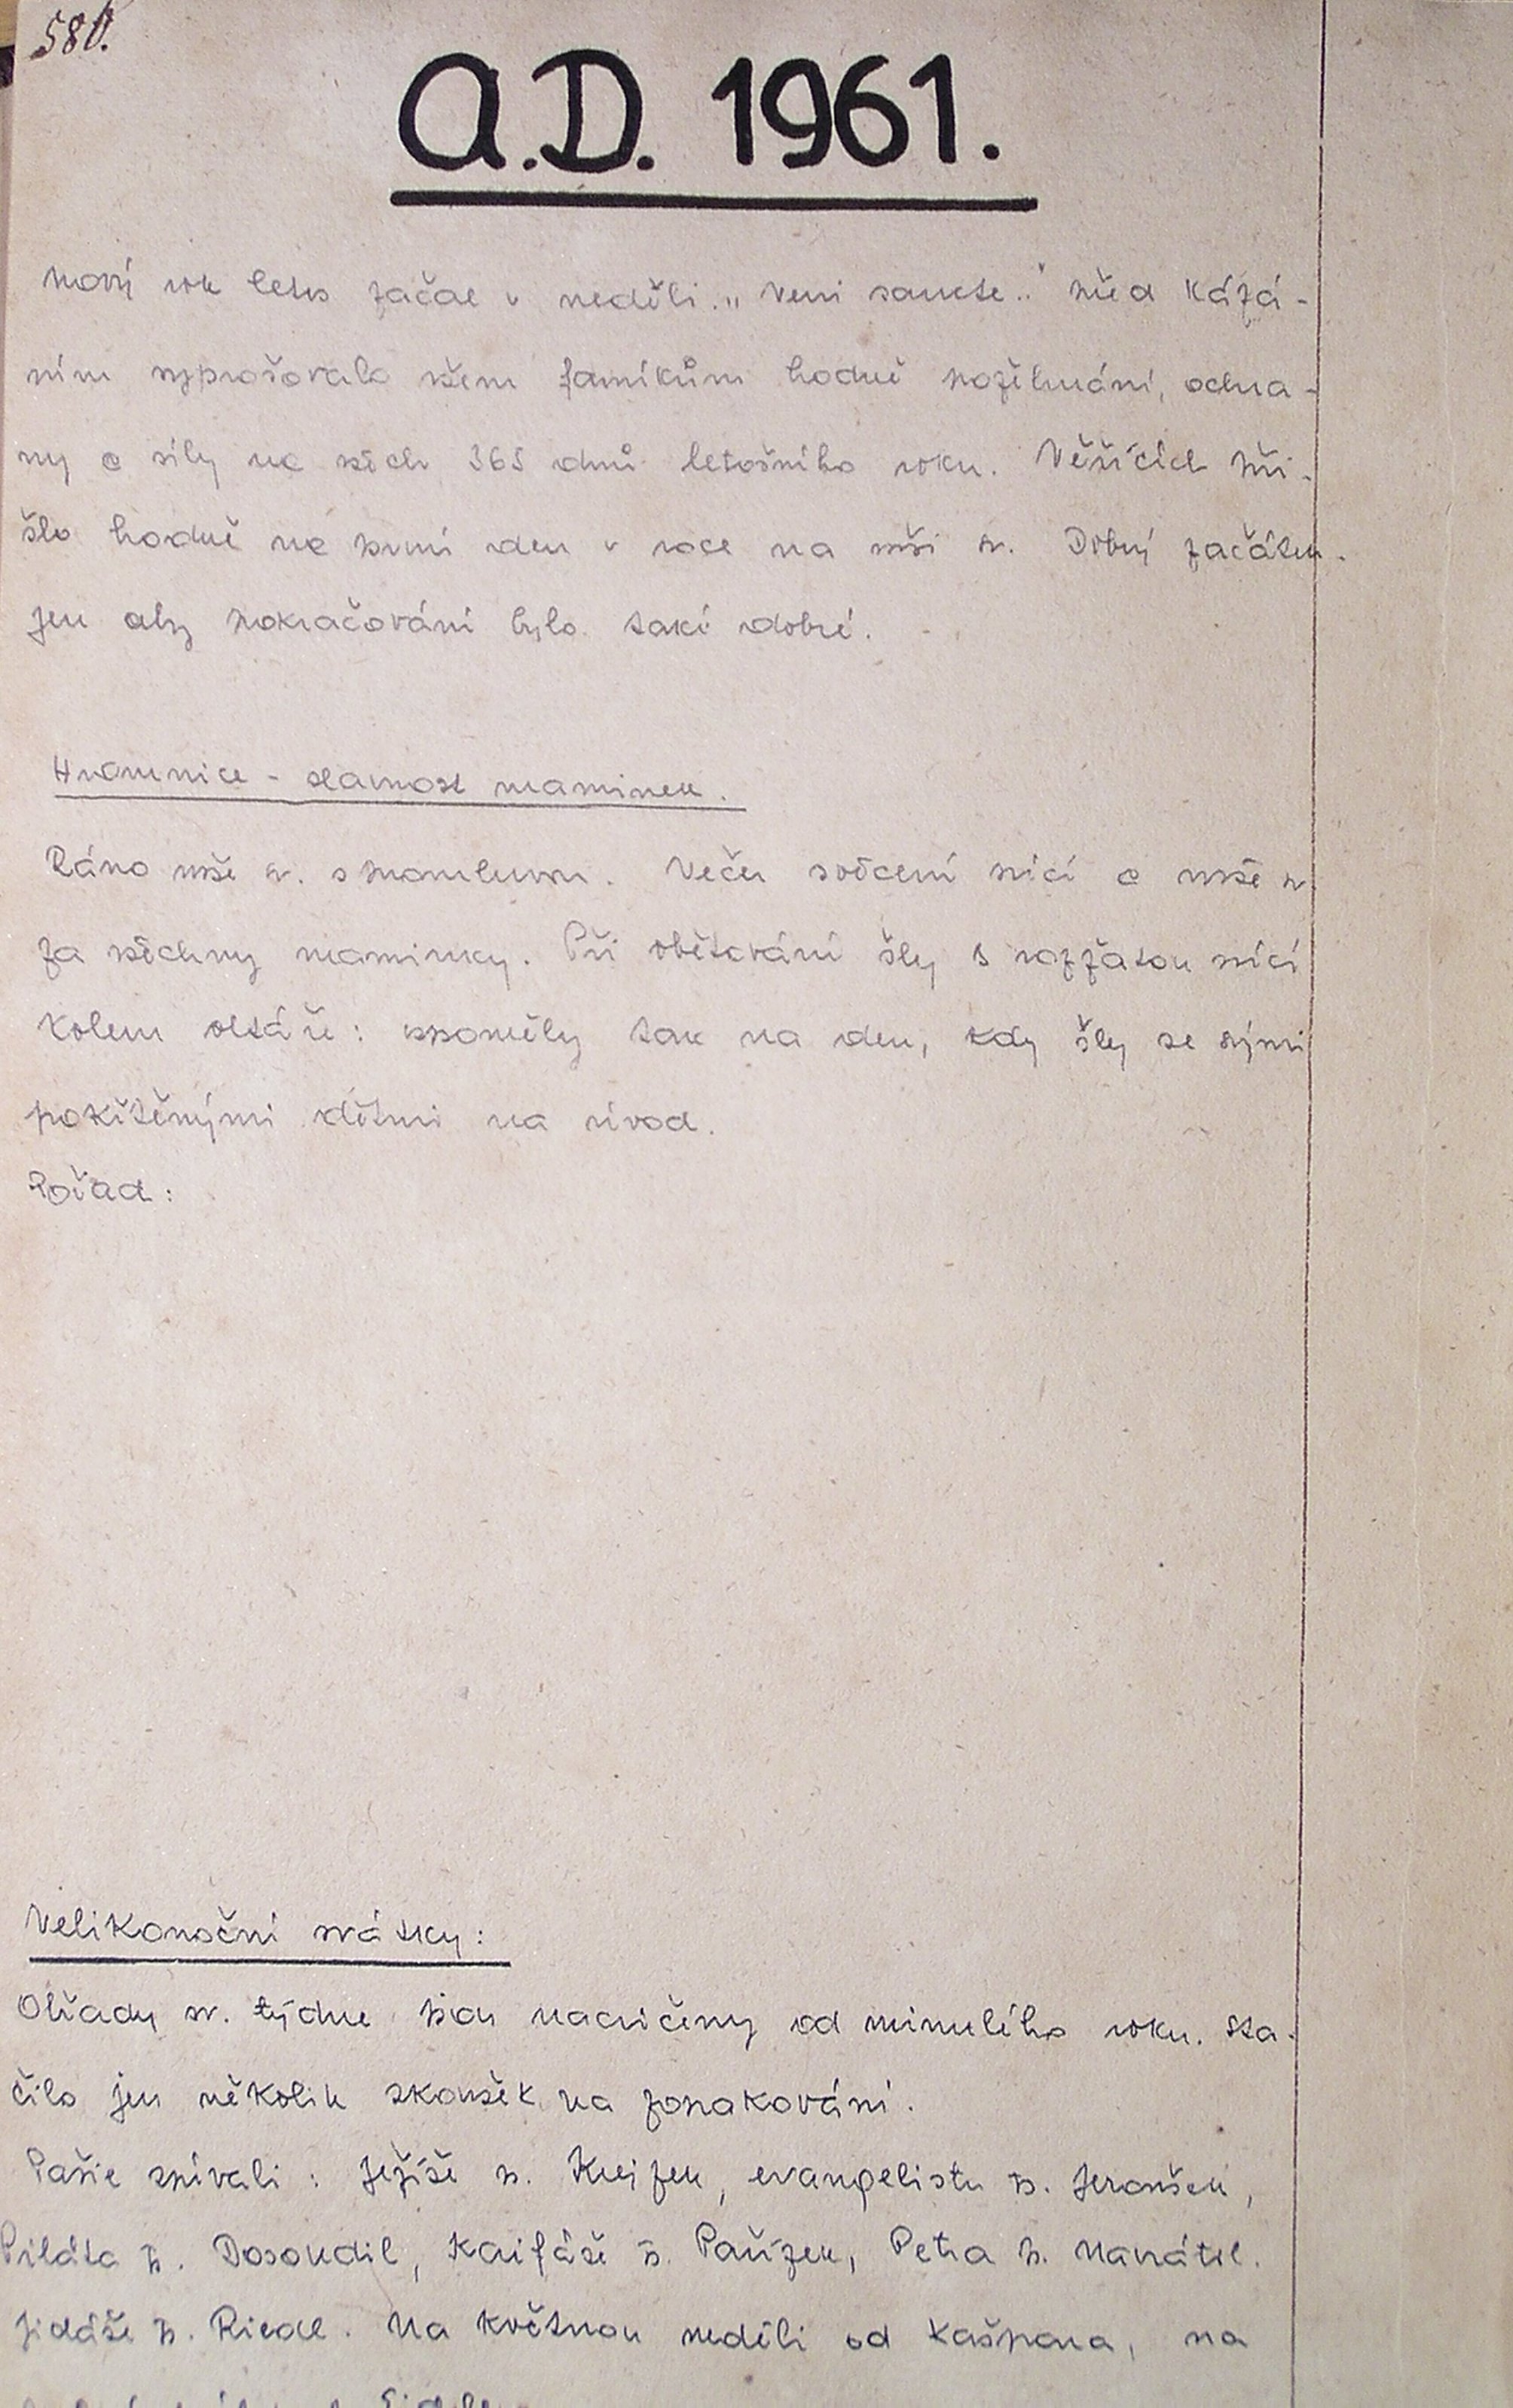 580.
A.D. 1961.
Nový rok letos začal v neděli. „Veni sancte.." před kázá-
ním vyprošovalo všem farníkům hodně požehnání, ochra-
ny a síly na všech 365 dnů letošního roku. Věřících při-
šlo hodně na první den v roce na mši sv. Dobrý začátek.
jen aby pokračování bylo také dobré.
Hromnice - slavnost maminek.
Ráno mše sv. s promluvou. Večer svěcení svící a mše sv.
za všechny maminky. Při obětování šly s rozžatou svící
kolem oltáře: vzpoměly tak na den, kdy šly se svými
pokřtěnými dětmi na úvod.
Pořad:
Velikonoční svátky:
Obřady sv. týdne jsou nacvičeny od minulého roku. Sta-
čilo jen několik zkoušek na zopakování.
Pašie zpívali: Ježíše p. Krejzek, evangelistu p. Jeroušek,
Piláta p. Dosoudil, Kaifáše p. Pařízek, Petra p. Navrátil.
Jidáše p. Riedl. Na květnou neděli od Kašpara, na